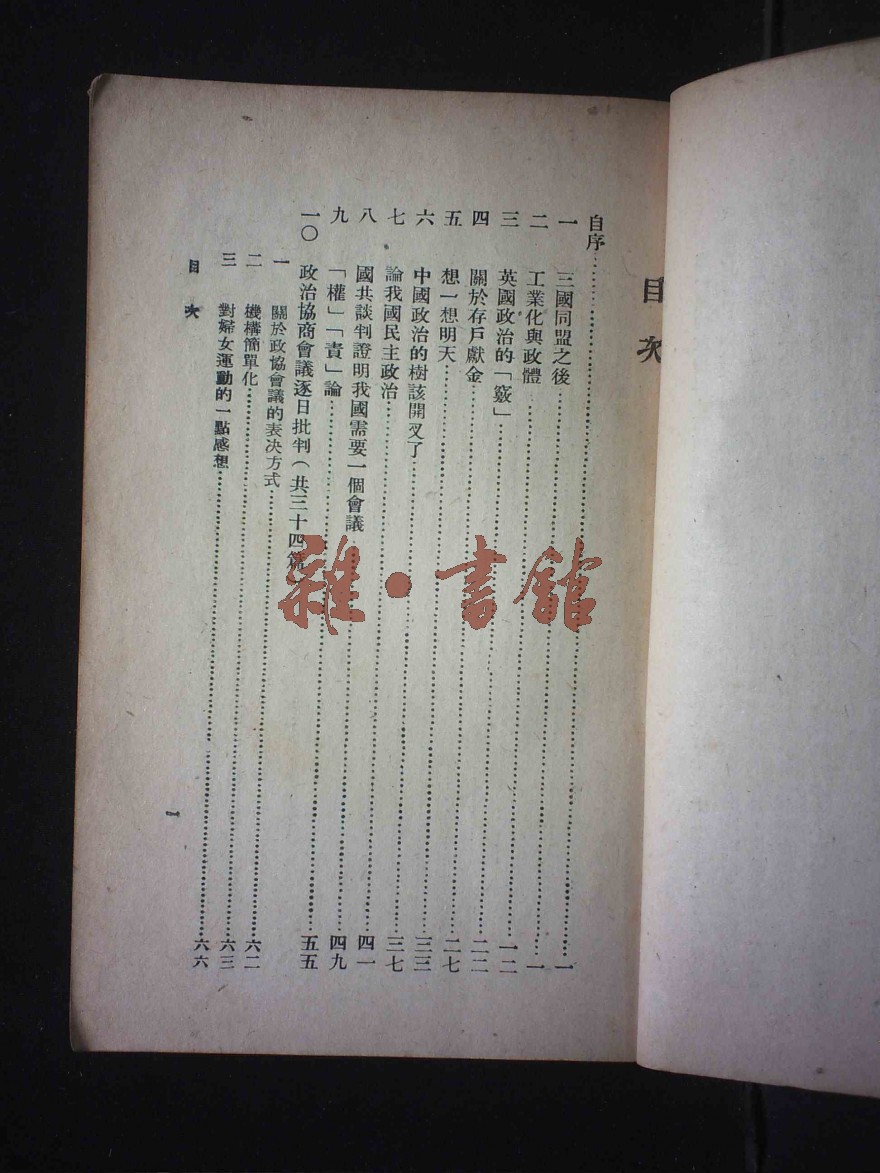 目次
自序……一
一 三國同盟之後……一
二 工業化與政體……一二
三 英國政治的「竅」……二二
四 關於存戶獻金……二七
五 想一想明天……三三
六 中國政治的樹該開叉了……三七
七 論我國民主政治……四一
八 國共談判證明我國需要一個會議……四九
九 「權」「責」論……五五
一〇 政治協商會議逐日批判（共三十四篇
一 關於政協會議的表决方式……六二
二 機構簡單化……六三
三 對婦女運動的一點感想……六六
目次
一
雜·書館